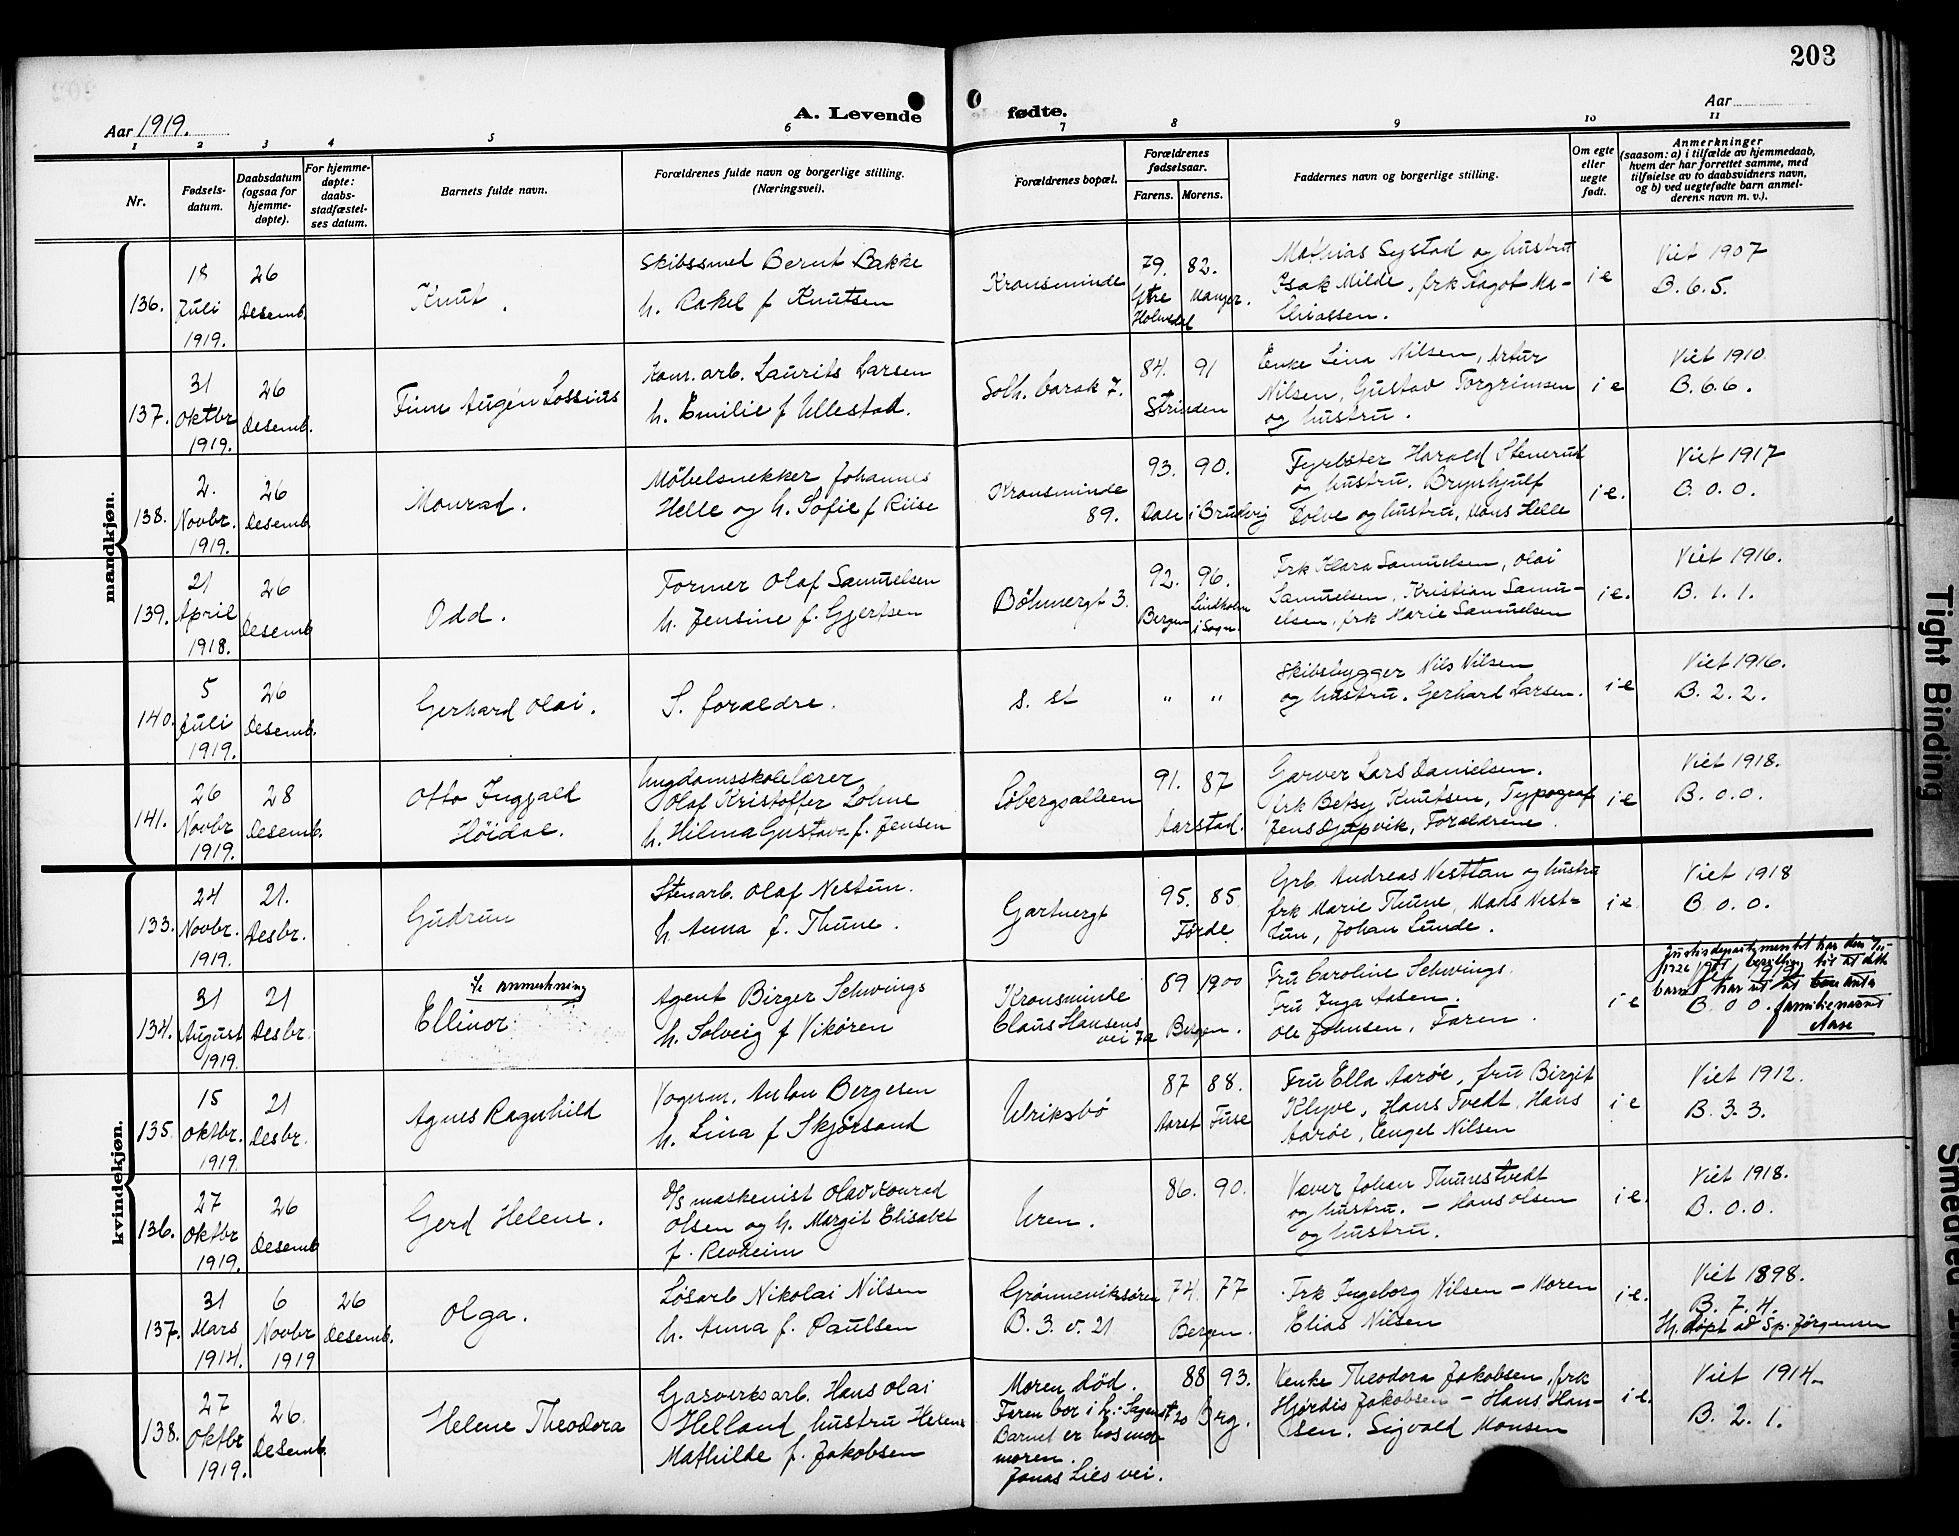 203
Aar 1919.
A. Levende
fødte.
Aar
1 2 3 4 5 6 7 8 9 10 11
Nr.
Fødsels-
datum.
Daabsdatum
(ogsaa for
hjemme-
døpte).
For hjemme-
døpte:
daabs-
stadfæstel-
ses datum.
Barnets fulde navn.
Forældrenes fulde navn og borgerlige stilling.
(Næringsvei).
Forældrenes bopæl.
Forældrenes
fødselsaar.
Farens. Morens.
Faddernes navn og borgerlige stilling.
Om egte
eller
uegte
født.
Anmerkninger
(saasom: a) i tilfælde av hjemmedaab,
hvem der har forrettet samme, med
tilføielse av to daabsvidners navn,
og b) ved uegtefødte barn anmel-
derens navn m. v.).
mandkjøn.
136.
18
Juli
1919.
26
Desemb.
Knut.
Skibssmed Bernt Bakke
h. Rakel f Knutsen
Kronsminde
79. 82.
Ytre
Holmedal
Manger.
Mathias Systad og hustru
Isak Milde, frk Aagot Ma-
thiassen.
i e
Viet 1907
B. 6. 5.
137.
31
Oktbr
1919.
26
Desemb.
Finn Augén Lossius
Kom. arb. Laurits Larsen
h. Emilie f Ullestad.
Solh. barak 7.
84. 91
Strinden
Enke Lina Nilsen, Artur
Nilsen, Gustav Torgrimsen
og hustru.
i e
Viet 1910
B. 6. 6.
138.
2.
Novbr.
1919.
26
Desemb.
Monrad.
Møbelsnekker Johannes
Helle og h. Sofie f Riise
Kronsminde
89.
93. 90.
Dale i Brudvig
Fyrbøter Harald Stenerud
og hustru. Brynhjulf
Tolve og hustru, Mons Helle
i e.
Viet 1917
B. 0. 0.
139.
21
April
1918.
26
Desemb
Odd.
Former Olaf Samuelsen
h. Jensine f. Gjertsen
Bøhmergt 3.
92. 96.
Bergen
Lindholm
i Sogn.
Frk Klara Samuelsen, Olai
Samuelsen, Kristian Samu-
elsen, frk Marie Samuelsen
i e.
Viet 1916.
B. 1. 1.
140.
5
Juli
1919.
26
Desemb.
Gerhard Olai.
S. forældre.
s. st
" "
Skibsbygger Nils Nilsen
og hustru. Gerhard Larsen.
i e
Viet 1916.
B. 2. 2.
141.
26
Novbr
1919.
28
Desemb.
Otto Inggjald
Höidal.
Ungdomsskolelærer
Olaf Kristoffer Lohne
h. Hilma Gustava f. Jensen
Løbergsalleen
91. 87
Aarstad.
Garver Lars Danielsen.
frk Betsy Knutsen, Typograf
Jens Djupvik, Forældrene.
i e
Viet 1918.
B. 0. 0.
kvindekjøn.
133.
24
Novbr.
1919.
21.
Desbr.
Gudrun
Stenarb. Olaf Nestun.
h. Anna f. Thune.
Gartnergt
95. 85.
Førde
Grb. Andreas Nesttun og hustru
frk Marie Thune, Mads Nest-
tun, Johan Lunde.
i e.
Viet 1918
B. 0. 0.
134.
31
August
1919.
21
Desbr.
Se anmerkning
Ellinor
Agent Birger Schwings
h. Solveig f Vikören
Kronsminde
Claus Hansens
vei 7a
89 1900
Bergen.
Fru Caroline Schwings.
Fru Inga Aasen.
Ole Johnsen, Faren.
i e
Justisdepartementet har den
bevilling til at dette
barn har ret at bære
B. 0 0. familienavnet
Aase
135.
15
Oktbr.
1919.
21
Desbr.
Agnes Ragnhild
Vognm. Anton Bergesen
h. Lina f Skjørsand
Ulriksbö
87 88.
Fuse
Fru Ella Aarøe, fru Birgit
Klyve, Hans Tvedt, Hans
Aarøe, Engel Nilsen
i e
Viet 1912.
B. 3. 3.
136.
27
Oktbr
1919.
26
Desemb
Gerd Helene.
D/S maskenist Olav Konrad
Olsen og h. Margit Elisabet
f. Revheim
Uren.
86. 90.
Væver Johan Thunestvedt
og hustru. – Hans Olsen
og hustru.
i e.
Viet 1918.
B. 0. 0.
137.
31
Mars
1914.
6
Novbr
1919
26
Desemb.
Olga.
Løsarb Nikolai Nilsen
h. Anna f. Paulsen
Grønneviksøren
B. 3. v. 21
74. 77
Bergen.
Frk Ingeborg Nilsen – Moren
Elias Nilsen
i e.
Viet 1898.
B. 7. 4.
Hj. døpt av Sp. Jørgensen
138.
27
Oktbr
1919.
26.
Desemb.
Helene Theodora
Gasverksarb. Hans Olai
Helland hustru Helene
Mathilde f. Jakobsen
Moren død.
Faren bor i
20
Barnet er hos mor-
moren.
Jonas Lies vei.
88 93.
Brg.
Enke Theodora Jakobsen, frk
Hjørdis Jakobsen – Hans Han-
sen. Sigvald Monsen
i e.
Viet 1914
B. 2. 1.
Tight Binding
Smeared Ink